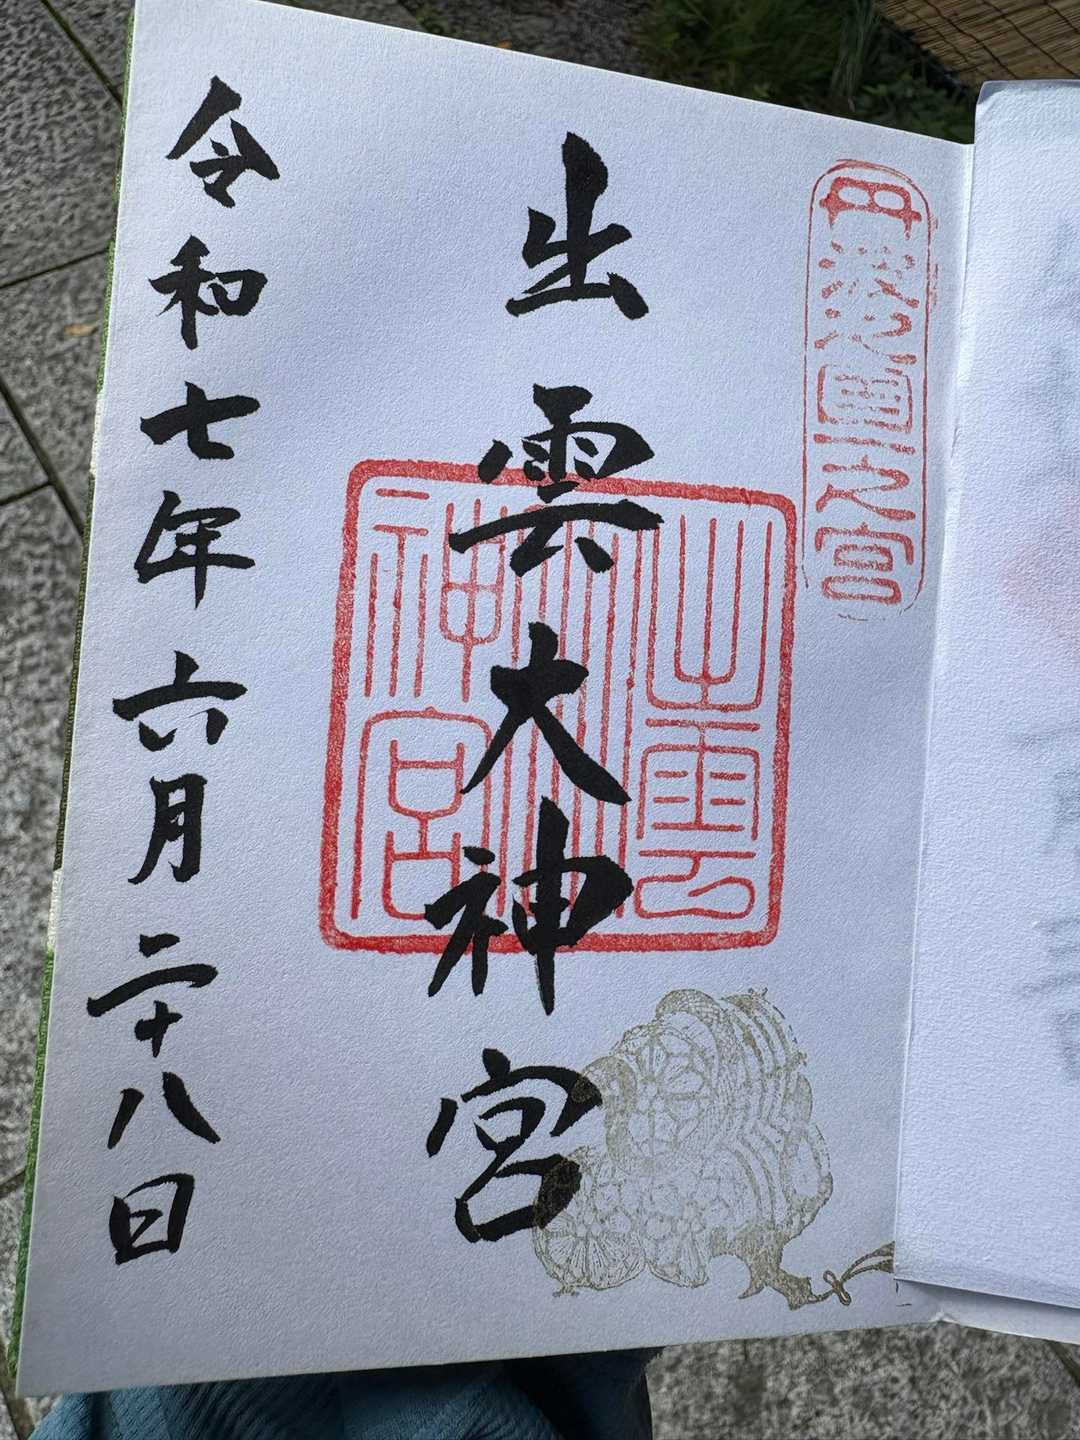 丹波國一之宮
出雲大神宮
出雲大神宮
令和七年六月二十八日